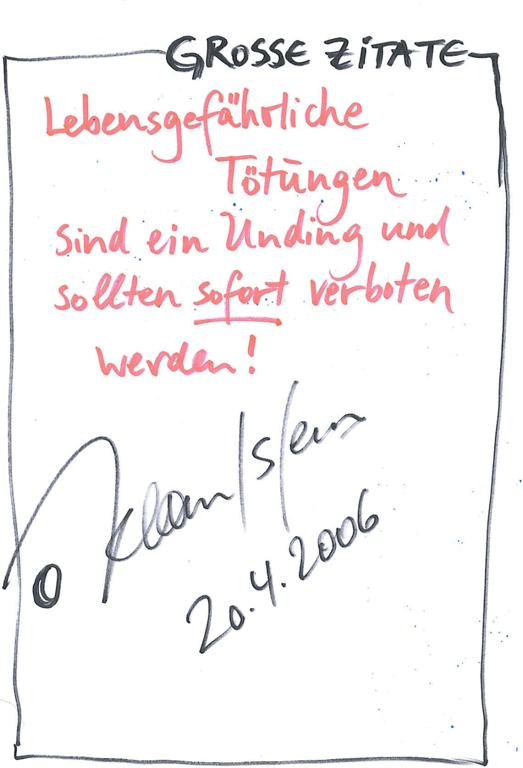 GROSSE ZITATE
Lebensgefährliche
Tötungen
sind ein Unding und
sollten sofort verboten
werden!
20.4.2006